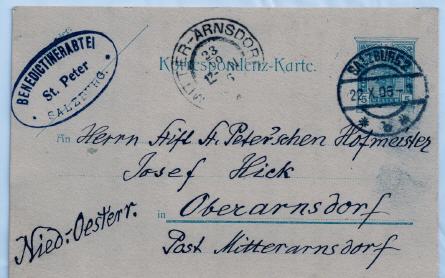 BENEDICTINERABTEI
St. Peter
SALZBURG.
MITTER-ARNSDORF
23
Korrespondenz-Karte.
SALZBURG 2
22 X 06
5
An Herrn Stift St. Peter'schen Hofmeister
Josef Hick
in Oberarnsdorf
Nied.-Oesterr.
Post Mitterarnsdorf